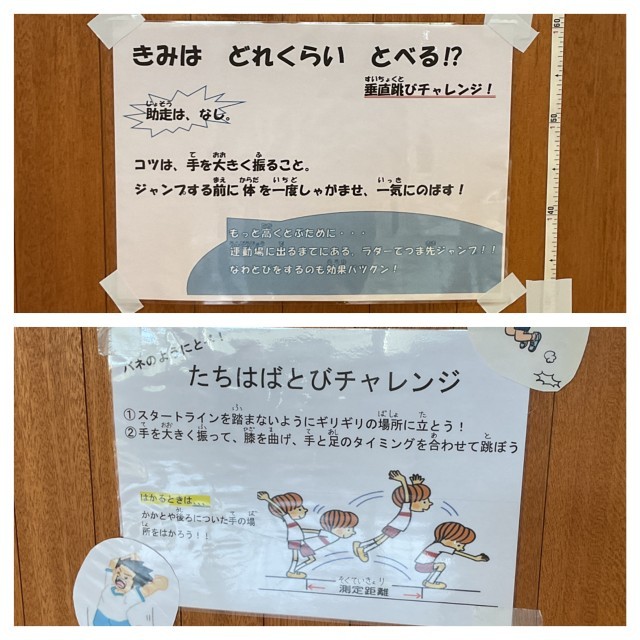 きみは どれくらい とべる!?
垂直跳びチャレンジ!
助走は、なし。
コツは、手を大きく振ること。
ジャンプする前に体を一度しゃがませ、一気にのばす!
もっと高くとぶために・・・
運動場に出るまでにある、ラダーでつま先ジャンプ!!
なわとびをするのも効果バツグン!
160
150
140
バネのようにと
たちはばとびチャレンジ
①スタートラインを踏まないようにギリギリの場所に立とう!
②手を大きく振って、膝を曲げ、手と足のタイミングを合わせて跳ぼう
はかるときは...
かかとや後ろについた手の場
所をはかろう!!
測定距離